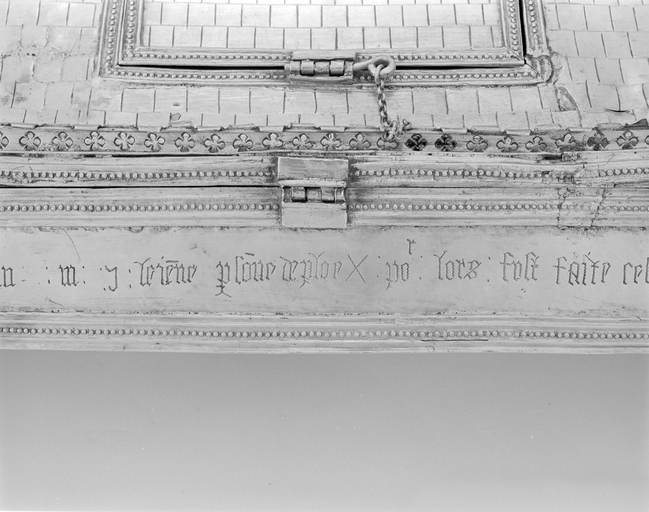 m : ȷ : leiēne p sōne de ploeX : poʳ : lors : fust faite cel